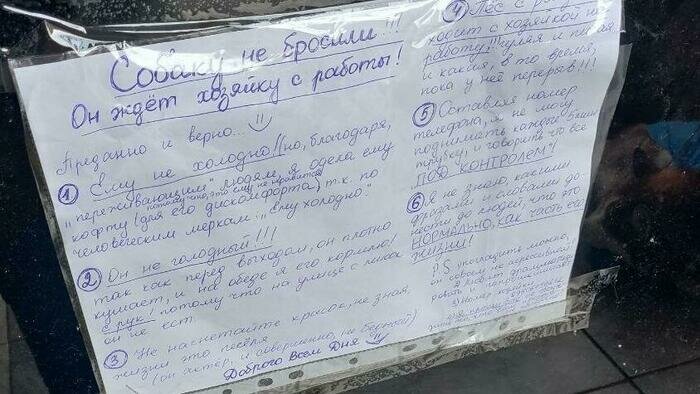 Собаку не бросили!!!
Он ждёт хозяйку с работы!
Преданно и верно...
1 Ему не холодно!! (но, благодаря,
"переживающим" людям, я одела ему
потому что, это ему не нравится
кофту (для его дискомфорта) т.к. по
человеческим меркам: "Ему холодно".
2 Он не голодный!!!
так как перед выходом, он плотно
кушает, и на обеде я его кормлю!
с рук! потому что на улице с миски
он не ест
3 Не насчитайте красок, не зная,
жизни это пёселя
(он актёр, и совершенно, не бедный)
Доброго Всем Дня
4 Пёс с р
ходит с хозяйкой на
работу!!! гуляя и
и какая, в то время,
пока у неё перерыв!!!
5 Оставляя номер
телефона, я не могу
поднимать каждые 5 мин
трубку, и говорить что все
"ПОД КОНТРОЛЕМ"!
6 Я не знаю, какими
фразами и словами до-
нести до людей, что это
НОРМАЛЬНО, как часть его
жизни!
P.S погладить можно,
он совсем не агрессивный!